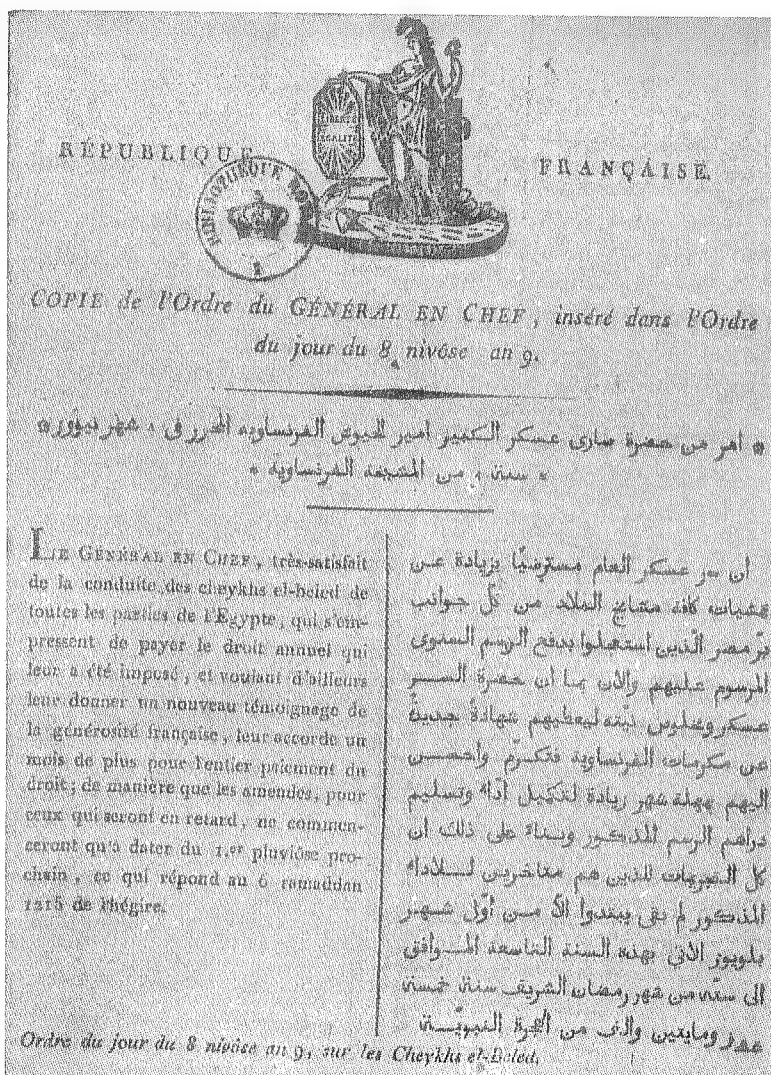 LIBERTÉ
ÉGALITÉ
RÉPUBLIQUE FRANÇAISE.
COPIE de l'Ordre du GÉNÉRAL EN CHEF, inséré dans l'Ordre
du jour du 8 nivôse an 9.
* امر من حضرة ساري عسكر الكبير امير الجيوش الفرنساويه المحرر في ٨ شهر نيوور *
* سنة ٩ من المشيخه الفرنساوية *
LE GÉNÉRAL EN CHEF, très-satisfait
de la conduite des cheykhs el-beled de
toutes les parties de l'Égypte, qui s'em-
pressent de payer le droit annuel qui
leur a été imposé, et voulant d'ailleurs
leur donner un nouveau témoignage de
la générosité française, leur accorde un
mois de plus pour l'entier paiement du
droit; de manière que les amendes, pour
ceux qui seront en retard, ne commen-
ceront qu'à dater du 1.er pluviôse pro-
chain, ce qui répond au 6 ramaddan
1215 de l'hégire.
ان عسكر العام مسترضيًا بزيادة عن
كافه مشايخ البلاد من كلّ جوانب
برّ مصر الّذين استعجلوا بدفع الرسم السنوى
المرسوم عليهم والان بما ان حضرة الســر
عسكر نيّته ليعطيهم شهادةً جديدةً
عن مكرمات الفرنساوية فتكرّم واحســن
اليهم بمهلة شهر زيادة لتكميل أداء وتسليم
دراهم الرسم المذكور وبناء على ذلك ان
كل للذين هم متاخرين لــلاداء
المذكور لم بقى يبتدوا الاّ مــن اوّل شــهر
بلويوز الاتى بهذه السنة التاسعه المــوافق
الى ستّه من شهر رمضان الشريف سنة خمسة
عشر ومايتين والف من الهجرة النبويّــة
Ordre du jour du 8 nivôse an 9, sur les Cheykhs el-Beled.